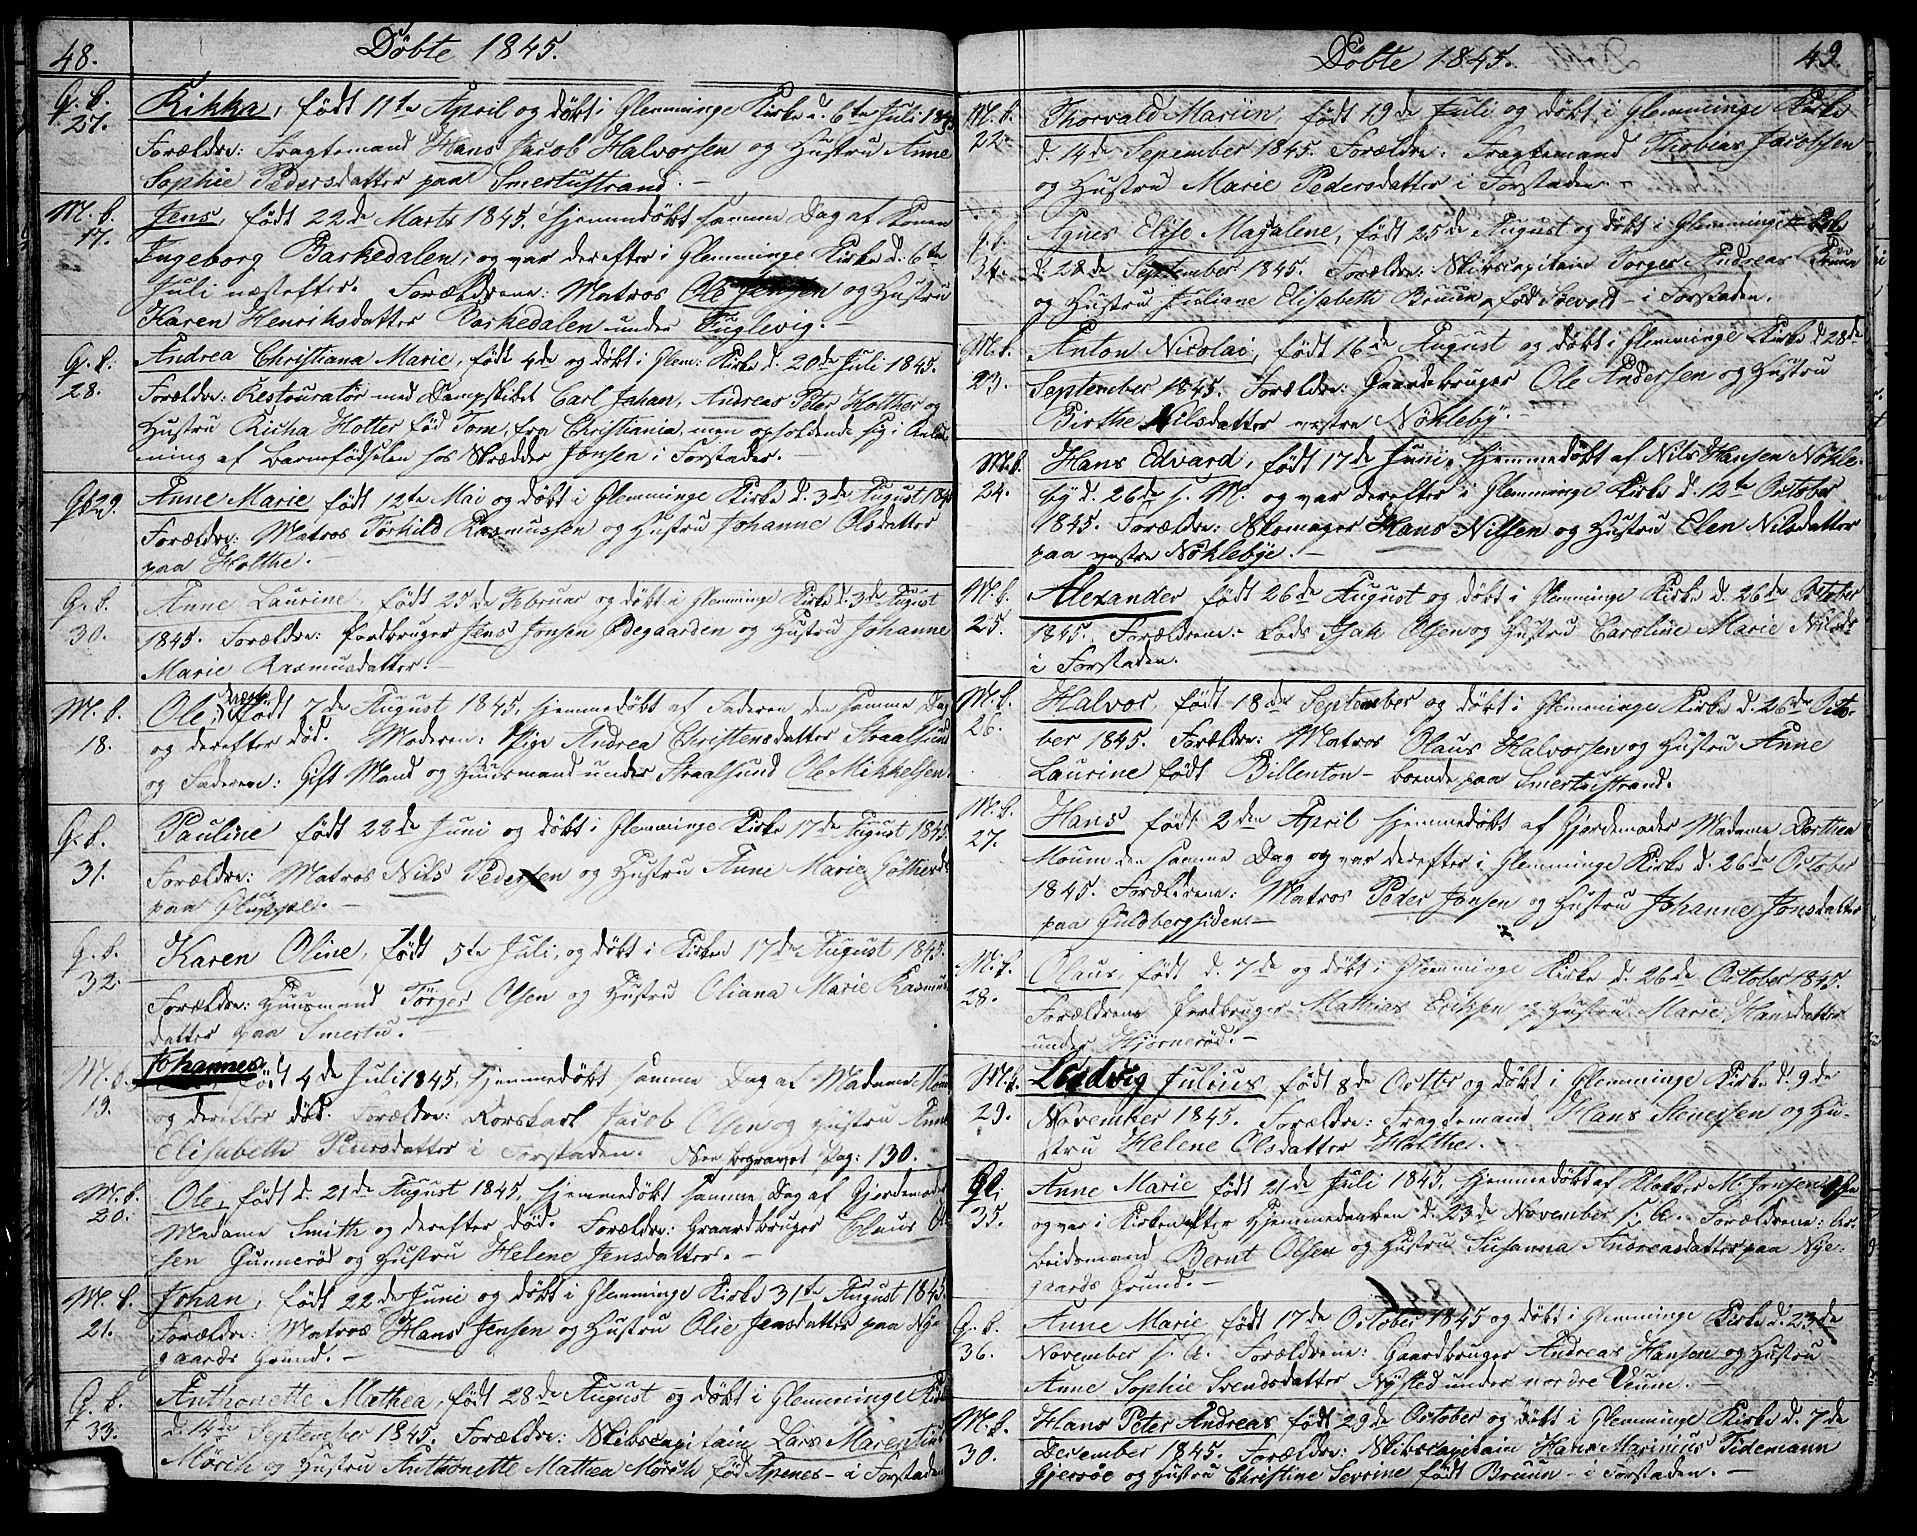 48.
Døbte 1845.
G. b. 27.
Kikka, født 11te April og døbt i Glemminge Kirke d. 6te Juli 1845
Forældre: Fragtemand Hans Jacob Halvorsen og Hustru Anne
Sophie Pedersdatter paa Smertustrand. -
M. b. 17.
Jens, født 22de Marts 1845. hjemmedøbt samme Dag af Konen
Ingeborg Barkedalen, og var derefter i Glemminge Kirke d. 6te
Juli næstefter. Forældrene: Matros Ole Jensen og Hustru
Karen Henriksdatter Barkedalen under Fuglevig. -
G. b. 28.
Andrea Christiana Marie, født 4de og døbt i Glem: Kirke d. 20de Juli 1845.
Forældre: Restouratør med Dampskibet Carl Johan, Andreas Peter Holther og
Hustru Kicha Holter fød Tom, fra Christiania, men opholdende sig i Anled-
ning af Barnfødselen hos Skrædder Jonsen i Forstaden. -
G. b. 29.
Anne Marie født 12te Mai og døbt i Glemminge Kirke d. 3de August 1845
Forældre: Matros Törhild Rasmussen og Hustru Johanne Olsdatter
paa Holthe. -
G. b. 30.
Anne Laurine, født 25de Februar og døbt i Glemminge Kirke d. 3de August
1845. Forældre: Jordbruger Jens Jonsen Ødegaarden og Hustru Johanne
Marie Rasmusdatter. -
M. b. 18.
Ole, født 7de August 1845, hjemmedøbt af Faderen den samme Dag
og derefter død. Moderen: Pige Andrea Christensdatter Straalsund
og Faderen: Gift Mand og Huusmand under Straalsund Ole Mikkelsen.
G. b. 31.
Pauline født 22de Juni og døbt i Glemminge Kirke 17de August 1845.
Forældre: Matros Nils Pedersen og Hustru Anne Marie
paa
G. b. 32.
Karen Oline, født 5te Juli, og døbt i Kirken 17de August 1845.
Forældre: Huusmand Törger Olsen og Hustru Oliana Marie Rasmus
datter paa Smertu.
M. b. 19.
Johannes født 4de Juli 1845, hjemmedøbt samme Dag af Madame
og derefter død. Forældre: Rorskarl Jacob Olsen og Hustru Anne
Elisabeth Pedersdatter i Forstaden. See begravet Pag: 130.
M. b. 20.
Ole, født d. 21de August 1845, hjemmedøbt samme Dag af Gjordemoder
Madame Smith og derefter død. Forældre: Gaardbruger Claus Ol-
sen Gunnerød og Hustru Helene Jensdatter. -
M. b. 21.
Johan, født 22de Juni og døbt i Glemminge Kirke 31te August 1845.
Forældre: Matros Hans Jensen og Hustru Olie Jensdatter paa Nye-
gaards Grund. -
G. b. 33.
Anthonette Mathea, født 28de August og døbt i Glemminge Kirke
d. 14de September 1845. Forældre: Skibscapitain Lars Marentius
Mørch og Hustru Anthonette Mathea Mørch fød Apenes - i Forstaden
49.
Døbte 1845.
M. b. 22.
Thorvald Mariin, født 19de Juli og døbt i Glemminge Kirke
d. 14de September 1845. Forældre: Fragtemand Thobias Jacobsen
og Hustru Marie Pedersdatter i Forstaden. -
G. b. 34.
Agnes Elise Magalene, født 25de August og døbt i Glemminge Kirke
d. 28de September 1845. Forældre: Skibscapitain Torger Andreas Bruun
og Hustru Juliane Elisabeth Bruun, fød Soevold - i Forstaden.
M. b. 23.
Anton Nicolai, født 16de August og døbt i Glemminge Kirke d 28de
September 1845. Forældre: Gaardbruger Ole Andersen og Hustru
Birthe Nilsdatter vestre Nøkleby. -
M. b. 24.
Hans Edvard, født 17de Juni, hjemmedøbt af Nils Hansen Nøkle-
by d. 26de s. M. og var derefter i Glemminge Kirke d. 12te October
1845. Forældre: Skomager Hans Nilsen og Hustru Elen Nilsdatter
paa vestre Nøklebye. -
M. b. 25.
Alexander født 26de August og døbt i Glemminge Kirke d. 26de October
1845. Forældrene: Lods Isak Olsen og Hustru Caroline Marie Nilsd:
i Forstaden.
M. b. 26.
Halvor født 18de September og døbt i Glemminge Kirke d. 26de Octo-
ber 1845. Forældre: Matros Olaus Halvorsen og Hustru Anne
Laurine født Billenton - boende paa Smertustrand.
M. b. 27.
Hans født 2den April hjemmedøbt af Gjordemoder Madame Dorthea
Moum den samme Dag og var derefter i Glemminge Kirke d. 26de October
1845. Forældrene: Matros Peder Jonsen og Hustru Johanne Jonsdatter
paa Guldbergsiden. -
M. b. 28.
Olaus, født d. 7de og døbt i Glemminge Kirke d. 26de October 1845.
Forældrene Jordbruger Mathias Eriksen og Hustru Marie Hansdatter
under Hjørnerød. -
M. b. 29.
Lydvig Julius født 8de Octbr og døbt i Glemminge Kirke d. 9de
November 1845. Forældre: Fragtemand Hans Stenersen og Hu-
stru Helene Olsdatter Holthe.
G. b. 35.
Anne Marie født 21de Juli 1845, hjemmedøbt af Klokker M. Jonsen
og var i Kirken efter Hjemmedaaben d. 23de November s. A. Forældrene: Ar-
beidsmand Bernt Olsen og Hustru Susanna Andreasdatter paa Nye-
gaards Grund. -
G. b. 36.
Anne Marie født 17de October 1845 og døbt i Glemminge Kirke d. 23de
November s. A. Forældrene: Gaardbruger Andreas Hansen og Hustru
Anne Sophie Svendsdatter Nysted under nordre Veum. -
M. b. 30.
Hans Peter Andreas født 29de October og døbt i Glemminge Kirke d. 7de
December 1845. Forældre: Skibscapitain Hans Marinius Tidemann
Gjersøe og Hustru Christine Sevrine født Bruun - i Forstaden. -